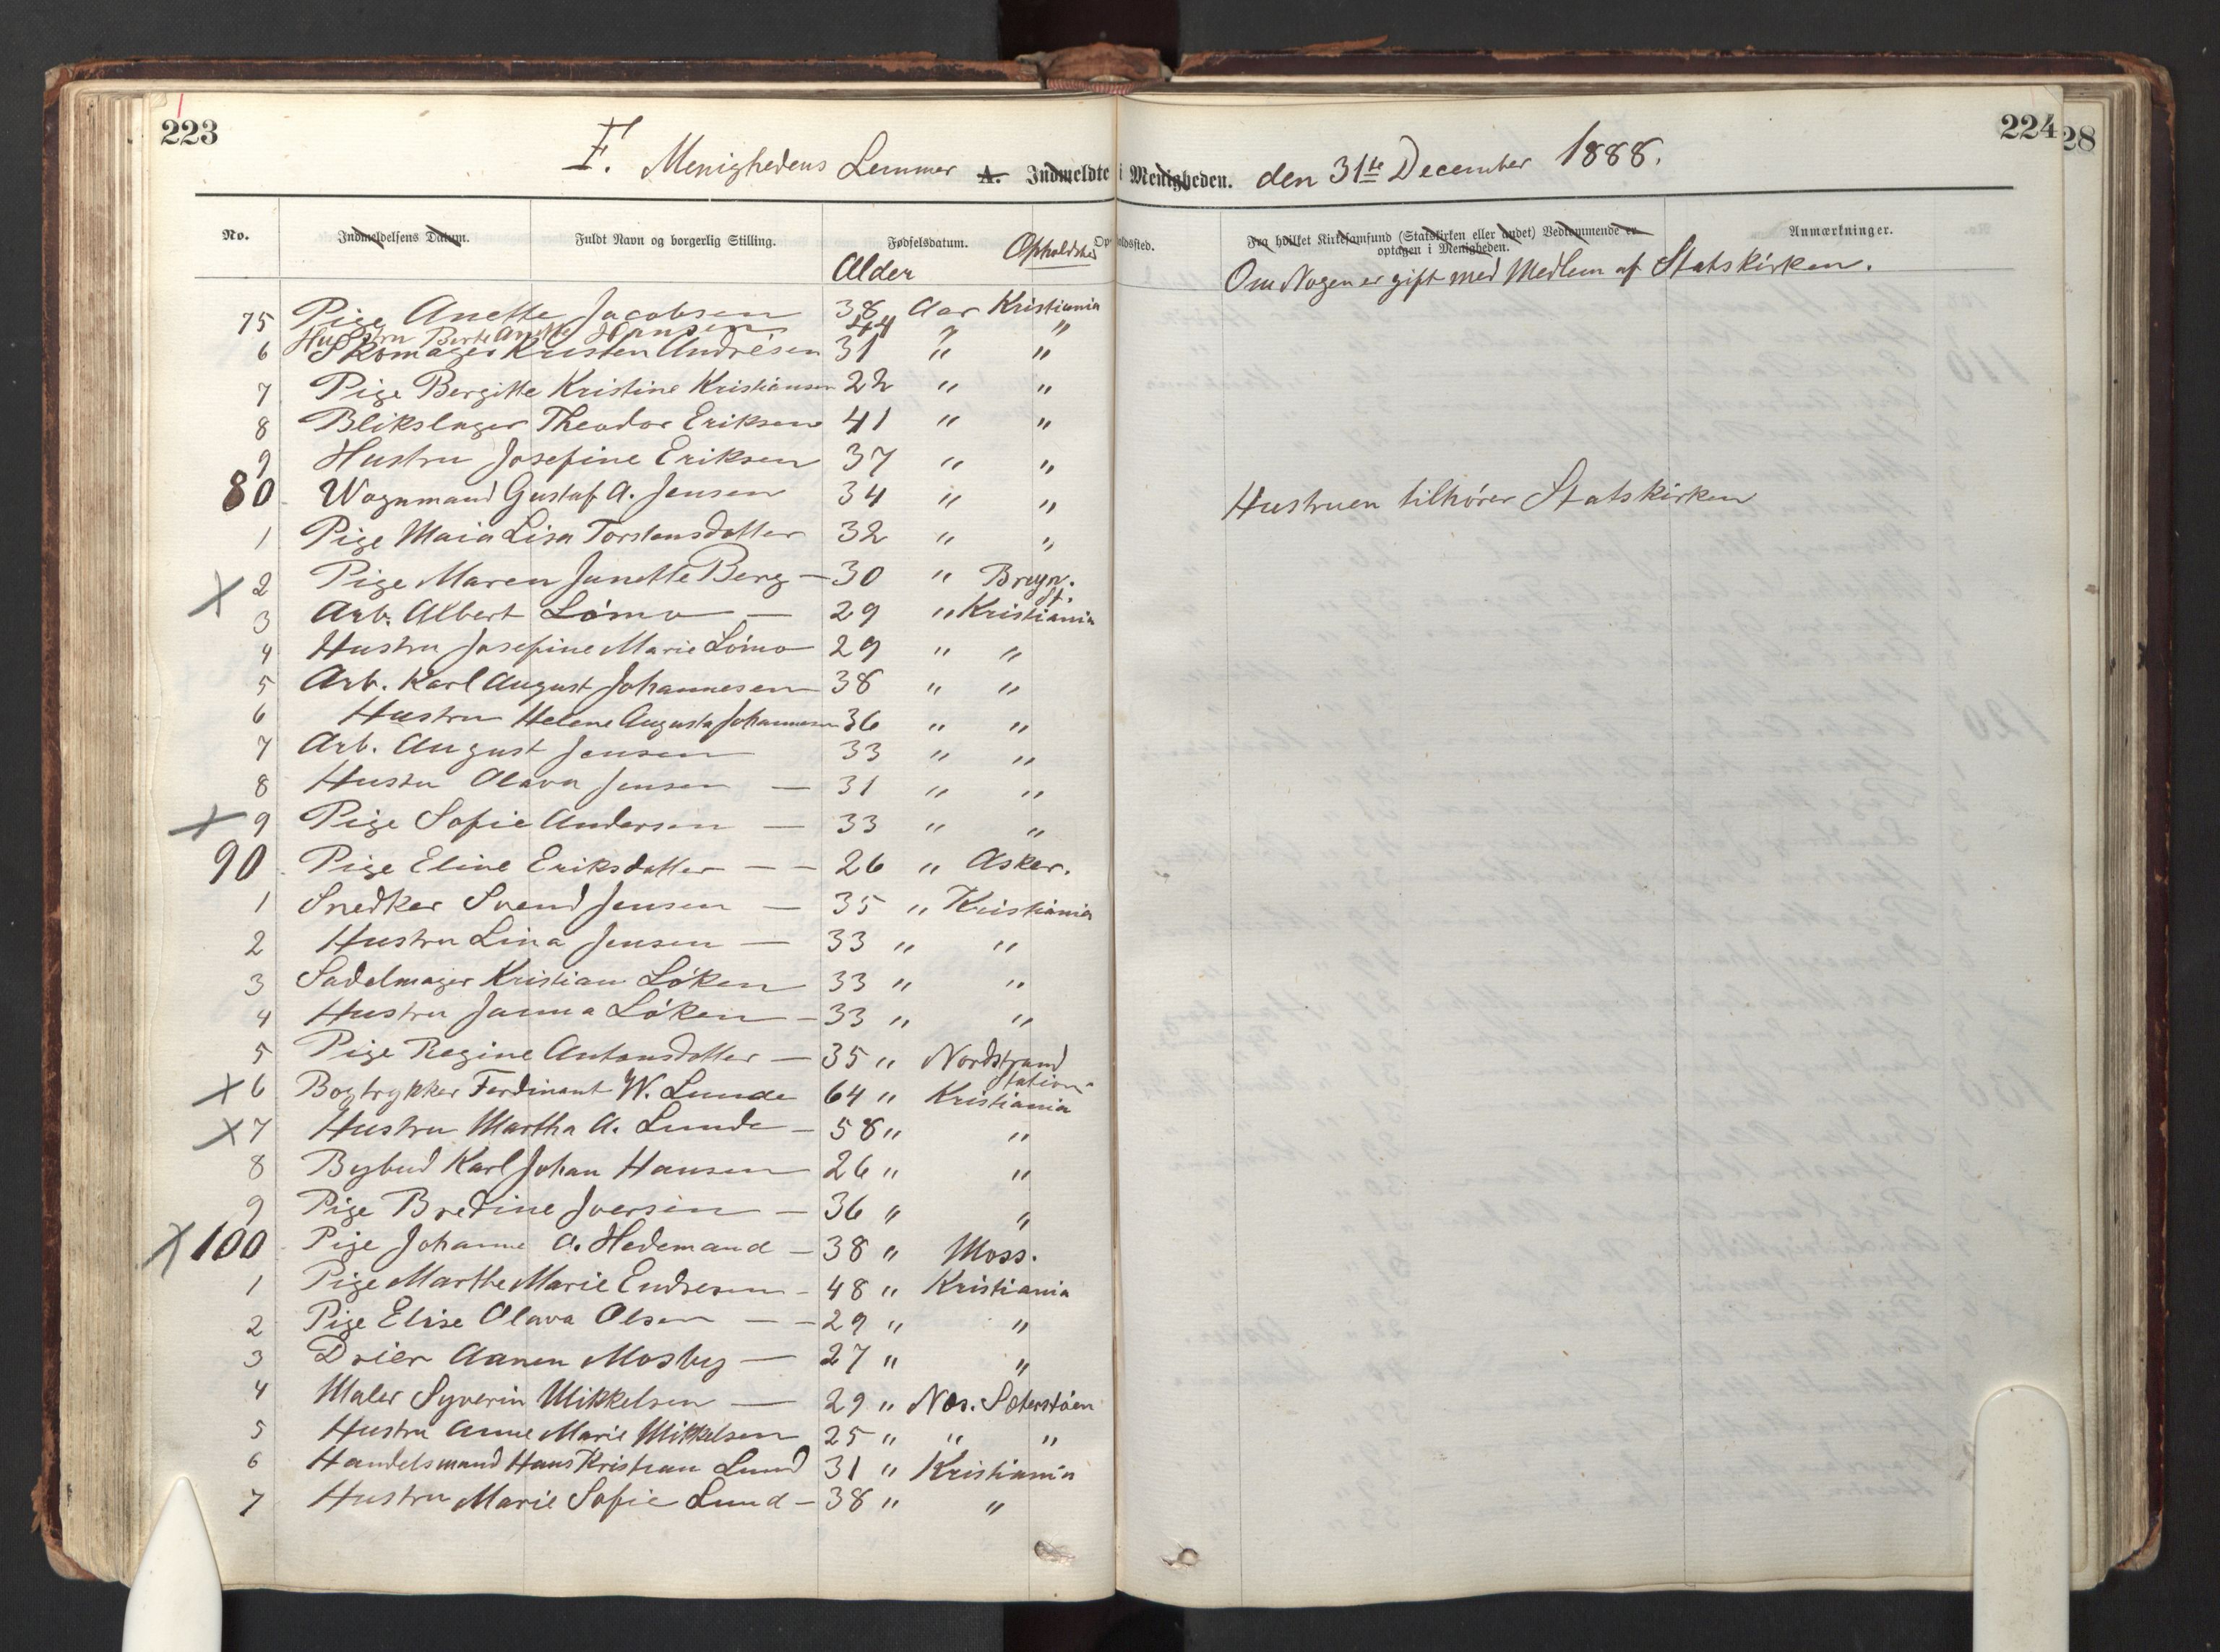 223
224
28
F. Menighedens Lemmer A. Indmeldte i Menigheden. den 31te December 1888.
No. Indmeldelsens Datum. Fuldt Navn og borgerlig Stilling. Fødselsdatum. Opholdssted.
Alder Opholdsted
Fra hvilket Kirkesamfund (Statskirken eller andet) Vedkommende er optagen i Menigheden. Anmærkninger.
Om Nogen er gift med Medlem af Statskirken.
75 Pige Anette Jacobsen 38 Aar Kristiania
Hustru Berte Anette Hansen 44 " "
6 Skomager Kristen Andrésen 31 " "
7 Pige Bergitte Kristine Kristiansen 22 " "
8 Blikslager Theodor Eriksen 41 " "
9 Hustru Josefine Eriksen 37 " "
80 Wognmand Gustaf A. Jensen 34 " " Hustruen tilhører Statskirken
1 Pige Maia Lisa Torstensdatter 32 " "
X 2 Pige Maren Janette Berg — 30 " Bryn. St.
3 Arb. Albert Lömo — 29 " Kristiania
4 Hustru Josefine Marie Lömo 29 " "
5 Arb. Karl August Johannesen 38 " "
6 Hustru Helene Augusta Johannesen 36 " "
7 Arb. August Jensen 33 " "
8 Hustru Olava Jensen — 31 " "
X 9 Pige Sofie Andersen — 33 " "
90 Pige Eline Eriksdatter — — 26 " Asker.
1 Snedker Svend Jensen — 35 " Kristiania
2 Hustru Lina Jensen — 33 " "
3 Sadelmager Kristian Löken 33 " "
4 Hustru Janna Löken — 33 " "
5 Pige Regine Antonsdatter — 35 " Nordstrand Station
X 6 Bogtrykker Ferdinant W. Lunde 64 " Kristiania
X 7 Hustru Martha A. Lunde — 58 " "
8 Bybud Karl Johan Hansen 26 " "
9 Pige Bredine Iversen — 36 " "
X 100 Pige Johanne A. Hedemand — 38 " Moss.
1 Pige Marthe Marie Endresen — 48 " Kristiania
2 Pige Elise Olava Olsen — — 29 " "
3 Drier Aanen Mosby — 27 " "
4 Maler Syverin Mikkelsen — 29 " Nes. Sæterstöen
5 Hustru Anne Marie Mikkelsen 25 " " "
6 Handelsmand Hans Kristian Lund 31 " Kristiania
7 Hustru Marie Sofie Lund — 38 " "